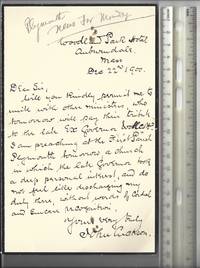 Plymouth
News for Monday
Woodland Park Hotel
Auburndale
Mass
Dec 22nd 1900.
Dear Sir,
Will you kindly permit me to
unite with other ministers, who
tomorrow will say their tribute
to the late Ex Governor Wolcott.
I am preaching at the First Parish
Plymouth tomorrow a church
in which the late Governor took
a deep personal interest, and do
not feel like discharging my
duty there, without words of
and sincere recognition.
Yours very truly
John Cuckson.